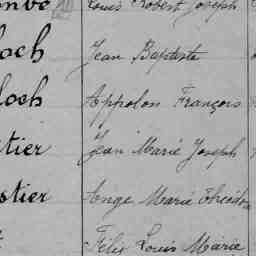 Louis Robert Joseph
och Jean Baptiste
loch Appolon François
tier Jean Marie Joseph
stier Ange Marie Théodore
Félix Louis Marie